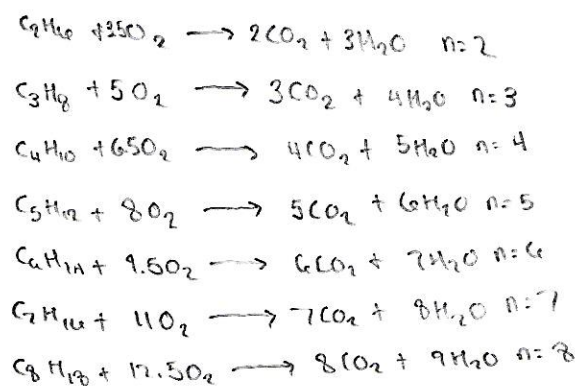 C₂H₆ + 3.5O₂ ⟶ 2CO₂ + 3H₂O n=2
C₃H₈ + 5O₂ ⟶ 3CO₂ + 4H₂O n=3
C₄H₁₀ + 6.5O₂ ⟶ 4CO₂ + 5H₂O n=4
C₅H₁₂ + 8O₂ ⟶ 5CO₂ + 6H₂O n=5
C₆H₁₄ + 9.5O₂ ⟶ 6CO₂ + 7H₂O n=6
C₇H₁₆ + 11O₂ ⟶ 7CO₂ + 8H₂O n=7
C₈H₁₈ + 12.5O₂ ⟶ 8CO₂ + 9H₂O n=8